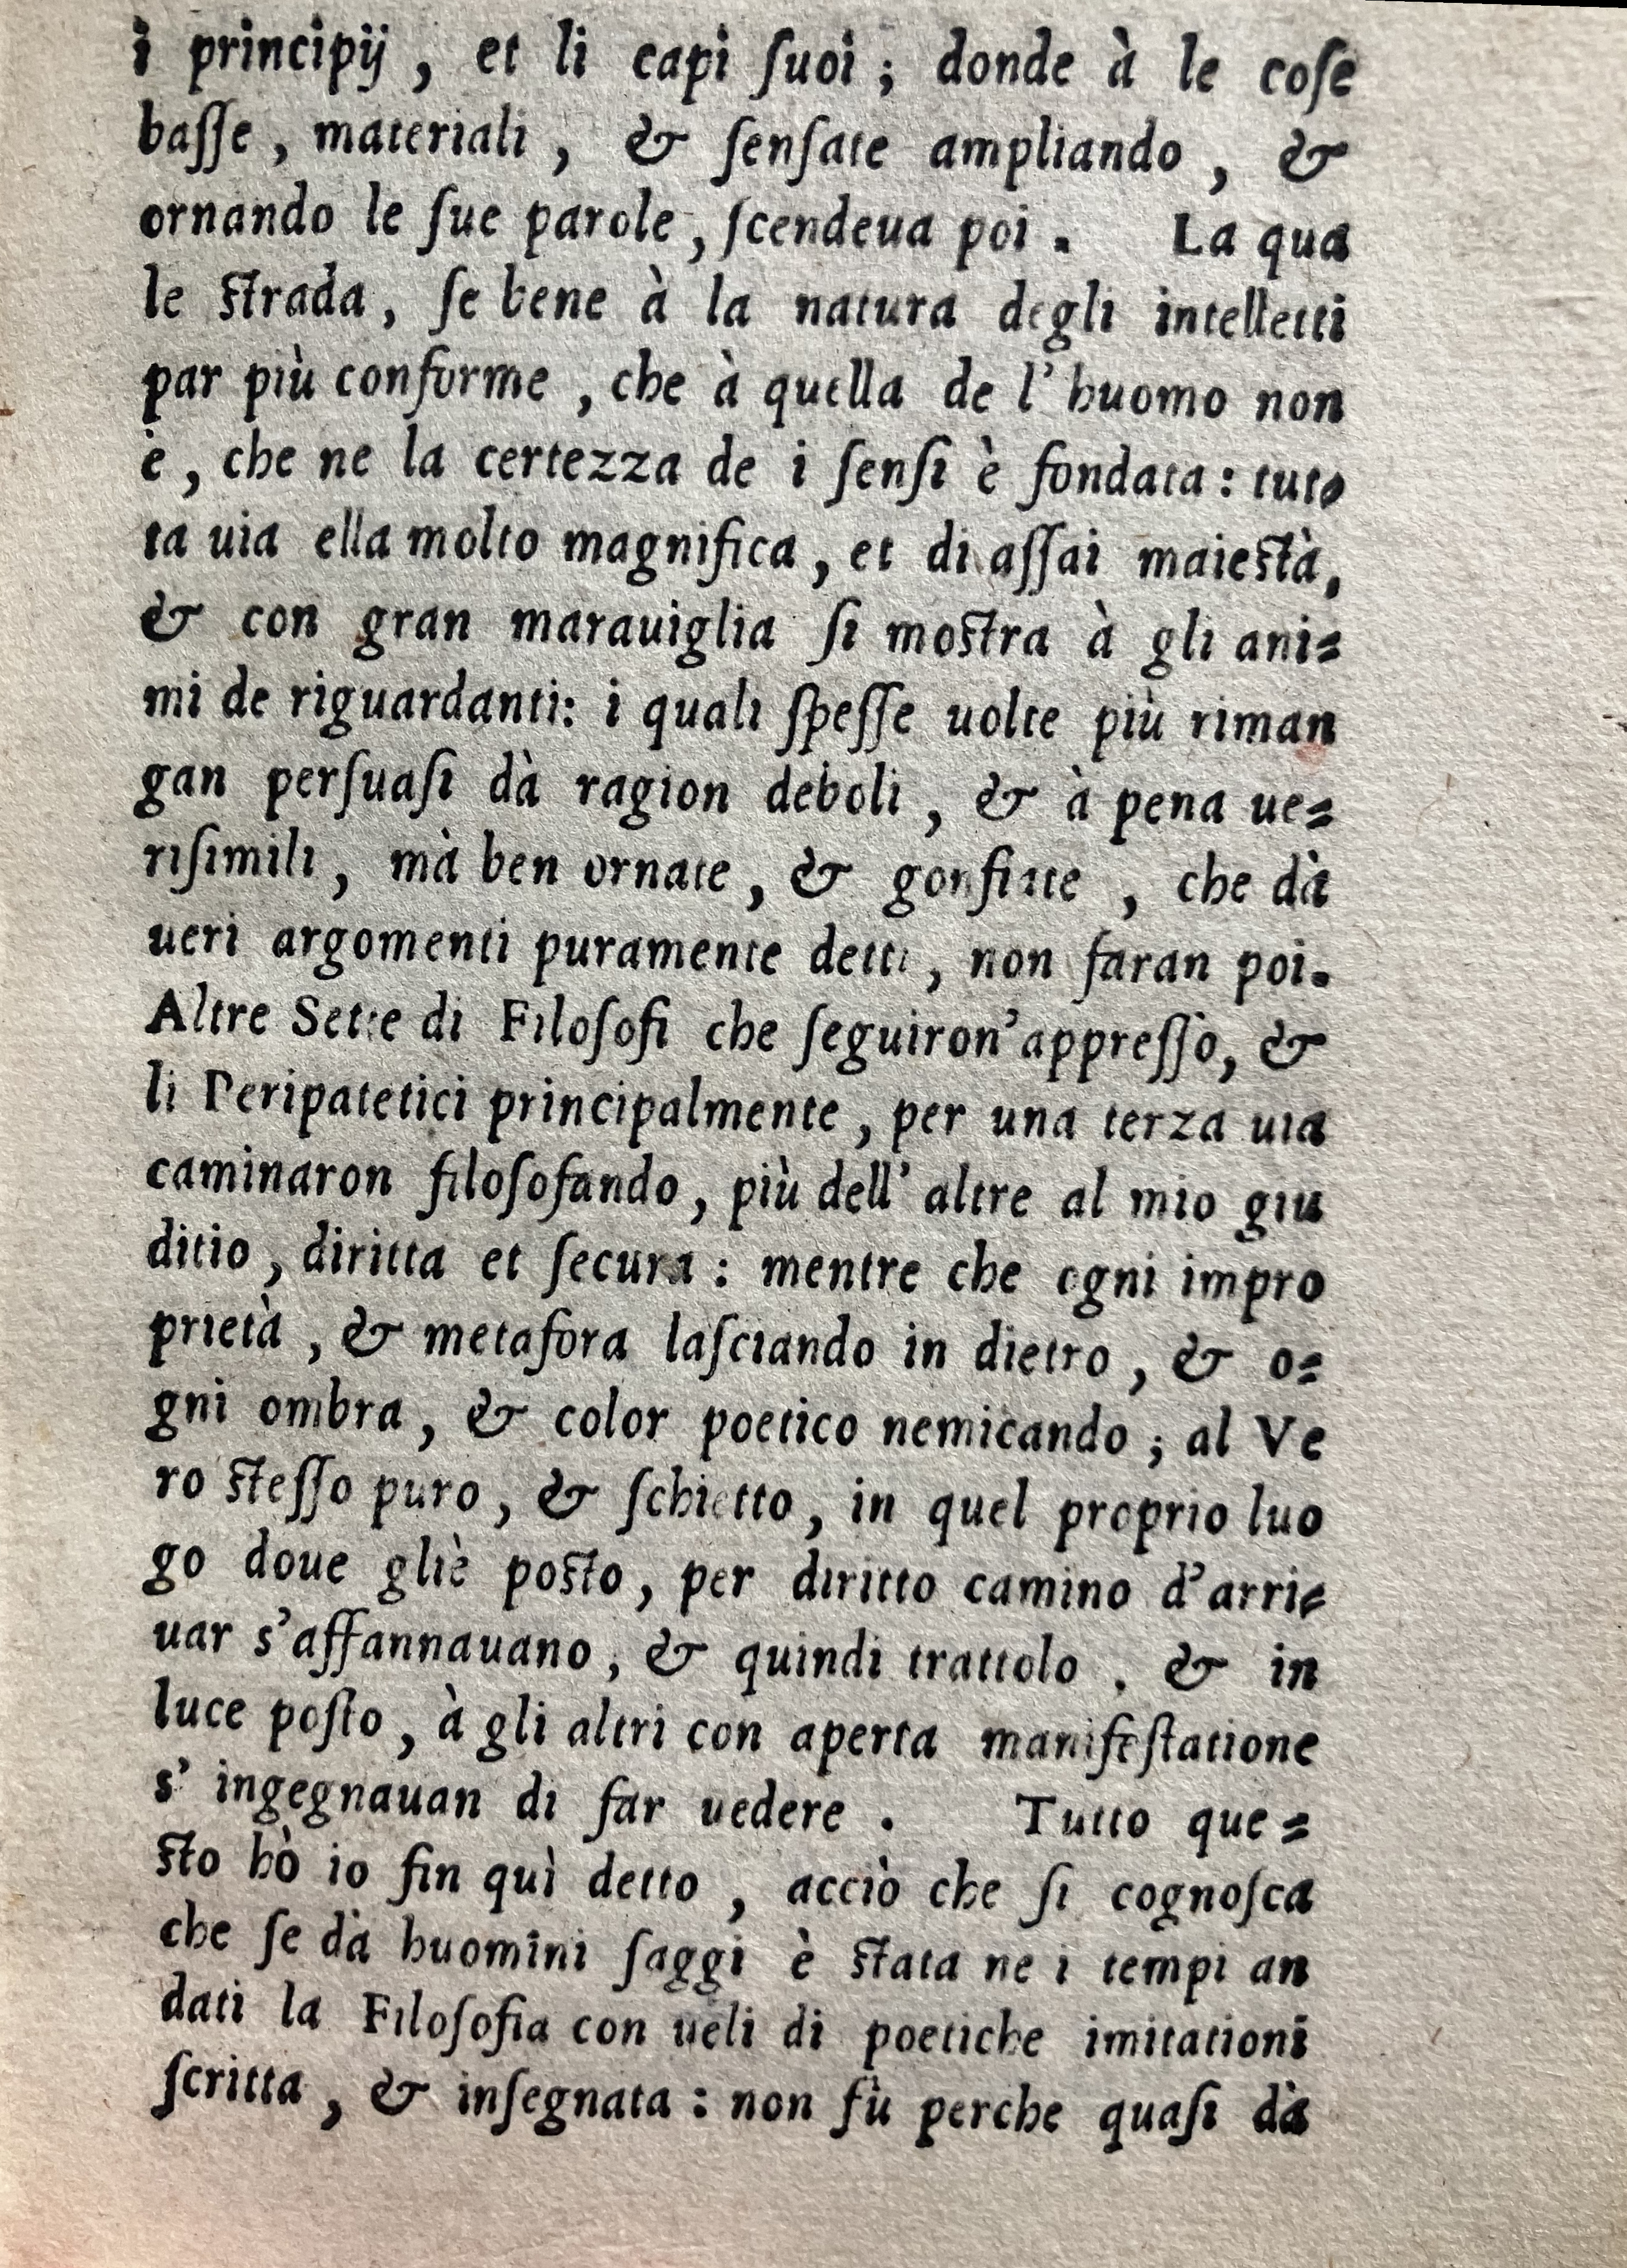 i principij, et li capi ſuoi; donde à le coſe
baſſe, materiali, & ſenſate ampliando, &
ornando le ſue parole, ſcendeua poi. La qua
le ſtrada, ſe bene à la natura degli intelletti
par più conforme, che à quella de l'huomo non
è, che ne la certezza de i ſenſi è fondata: tut⸗
ta uia ella molto magnifica, et di aſſai maieſtà,
& con gran marauiglia ſi moſtra à gli ani⸗
mi de riguardanti: i quali ſpeſſe uolte più riman
gan perſuaſi dà ragion deboli, & à pena ue⸗
riſimili, mà ben ornate, & gonfiate, che dà
ueri argomenti puramente detti, non faran poi.
Altre Sette di Filoſofi che ſeguiron'appreſſo, &
li Peripatetici principalmente, per una terza uia
caminaron filoſofando, più dell'altre al mio giu
ditio, diritta et ſecura: mentre che ogni impro
prietà, & metafora laſciando in dietro, & o⸗
gni ombra, & color poetico nemicando; al Ve
ro ſteſſo puro, & ſchietto, in quel proprio luo
go doue gliè poſto, per diritto camino d'arri⸗
uar s'affannauano, & quindi trattolo, & in
luce poſto, à gli altri con aperta manifeſtatione
s'ingegnauan di far uedere. Tutto que⸗
ſto hò io fin quì detto, acciò che ſi cognoſca
che ſe dà huomini ſaggi è ſtata ne i tempi an
dati la Filoſofia con ueli di poetiche imitationi
ſcritta, & inſegnata: non fù perche quaſi dà